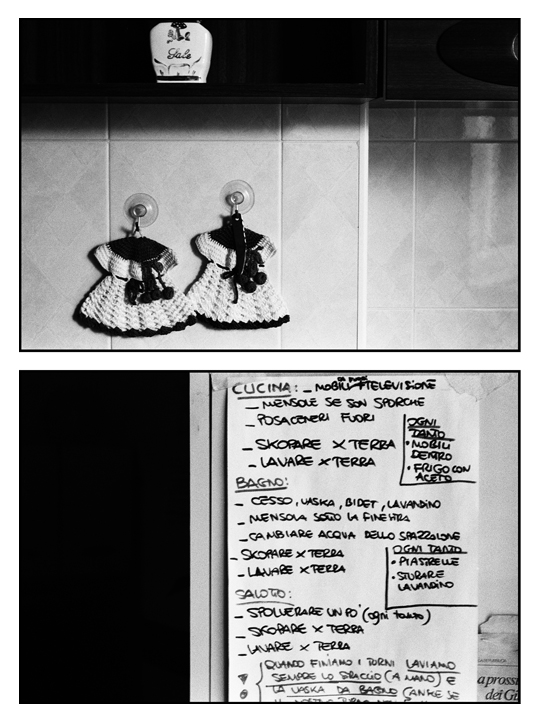 Sale
CUCINA: - MOBILI + TELEVISIONE
- MENSOLE SE SON SPORCHE
- POSACENERI FUORI
- SKOPARE X TERRA
- LAVARE X TERRA
OGNI
TANTO
• MOBILI
DENTRO
• FRIGO CON
ACETO
BAGNO:
- CESSO, VASKA, BIDET, LAVANDINO
- MENSOLA SOTTO LA FINESTRA
- CAMBIARE ACQUA DELLO SPAZZOLONE
- SKOPARE X TERRA
- LAVARE X TERRA
OGNI TANTO
• PIASTRELLE
• STURARE
LAVANDINO
SALOTTO:
- SPOLVERARE UN PO' (ogni tanto)
- SCOPARE X TERRA
- LAVARE X TERRA
QUANDO FINIAMO I TURNI LAVIAMO
SEMPRE LO STRACCIO (A MANO) E
LA VASKA DA BAGNO (ANKE SE
a pross
dei Gi